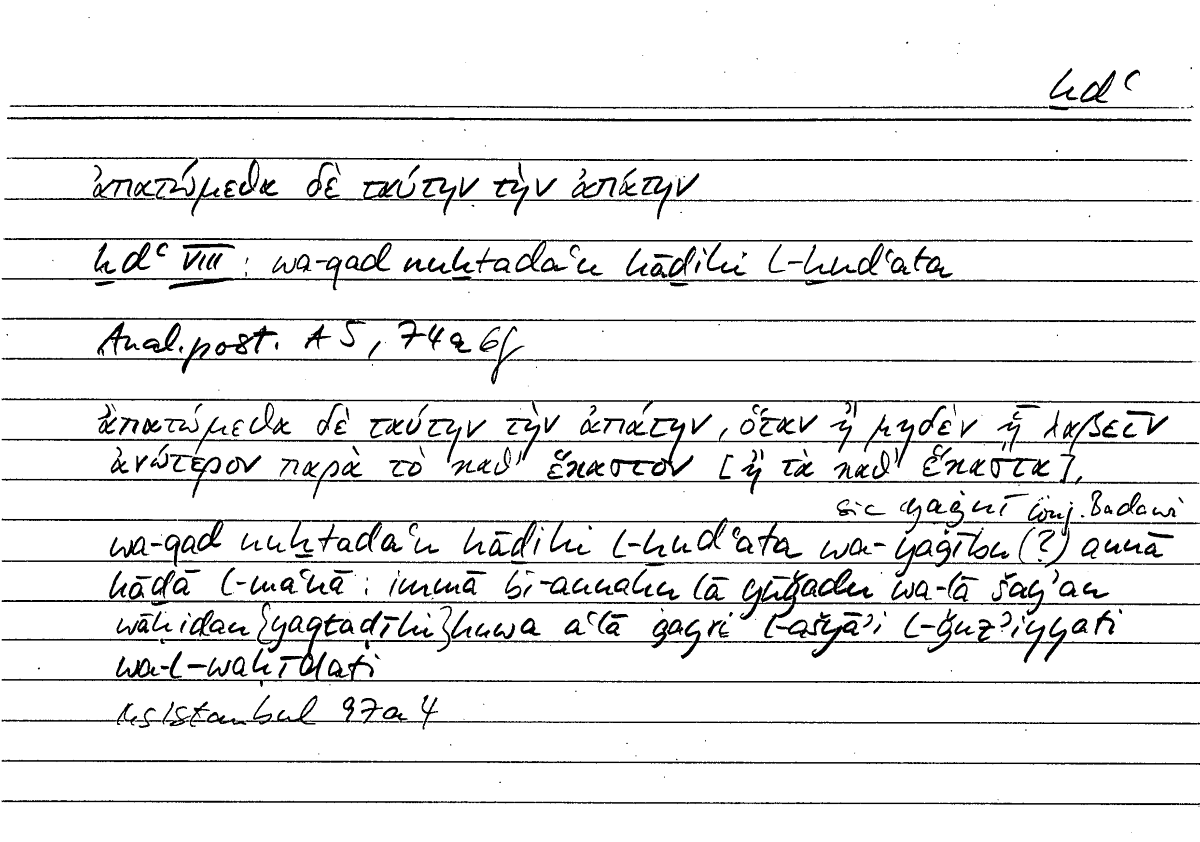 ḫdʿ
ἀπατώμεθα δὲ ταύτην τὴν ἀπάτην
ḫdʿ VIII : wa-qad nuḫtadaʿu hāḏihi l-ḫudʿata
Anal. post. A 5, 74a6f
ἀπατώμεθα δὲ ταύτην τὴν ἀπάτην, ὅταν ἢ μηδὲν ᾖ λαβεῖν
ἀνώτερον παρὰ τὸ καθ' ἕκαστον [ἢ τὰ καθ' ἕκαστα],
sic yaġnī conj. Badawi
wa-qad nuḫtadaʿu hāḏihi l-ḫudʿata wa-yaġību (?) annā
hāḏā l-maʿnā : immā bi-annahu lā yūǧadu wa-lā šayʾan
wāḥidan {yaqtaḍīhi} huwa aʿlā ġayri l-ašyāʾi l-ǧuzʾiyyati
wa-l-waḥīdati
Hs Istanbul 97a4